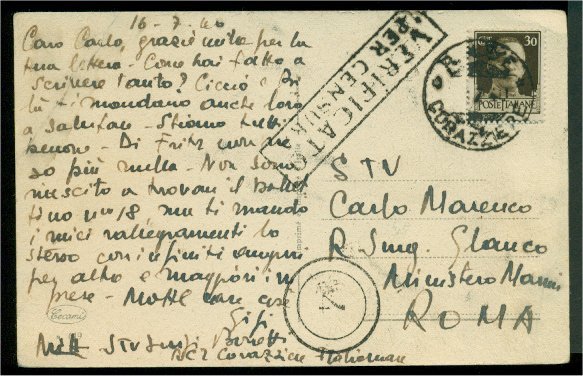 16-7-40
Caro Carlo, grazie mille per la
tua lettera - Come hai fatto a
scrivere tanto? Ciccio e
ti mandano anche loro
a salutare - Stiamo tutti
benone - Di Fritz non ne
so più nulla - Non sono
riuscito a trovare il bollet
tino n° 18, ma ti mando
i miei rallegramenti lo
stesso con infiniti auguri
per altre e maggiori im
prese - Molte care cose
Gigi
STV Luigi
R C T Corazziere
VERIFICATO
PER CENSURA
R. NAVE
CORAZZIERE
30
POSTE ITALIANE
STV
Carlo Marenco
R Smg. Glauco
Ministero Marina
ROMA
Cecami